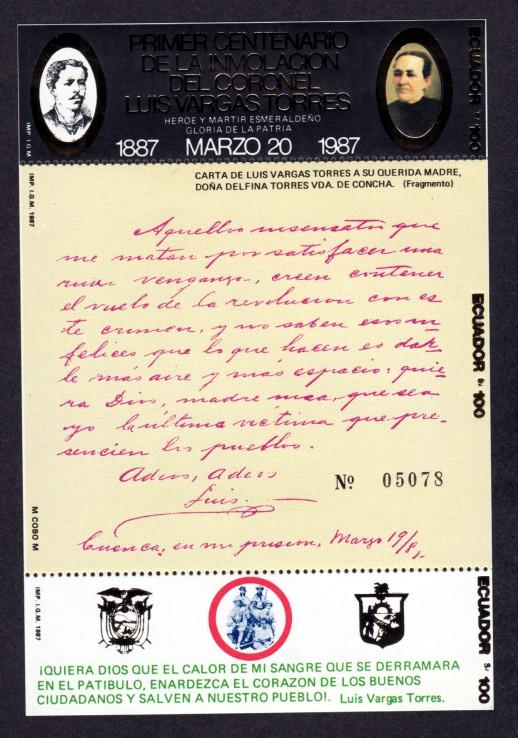 PRIMER CENTENARIO
DE LA INMOLACION
DEL CORONEL
LUIS VARGAS TORRES
HEROE Y MARTIR ESMERALDEÑO
GLORIA DE LA PATRIA
1887 MARZO 20 1987
IMP. I.G.M
ECUADOR S/. 100
CARTA DE LUIS VARGAS TORRES A SU QUERIDA MADRE,
DOÑA DELFINA TORRES VDA. DE CONCHA. (Fragmento)
IMP. I.G.M. 1987
Aquellos insensatos que
me matan por satisfacer una
ruin venganza, creen contener
el vuelo de la revolucion con es
te crimen, y no saben esos in
felices que lo que hacen es dar
le más aire y más espacio: quie
ra Dios, madre mia, que sea
yo la última víctima que pre-
sencien los pueblos.
Adios, Adios
Luis.
Nº 05078
Cuenca, en mi prision, Marzo 19/8
ECUADOR S/. 100
M COBO M
IMP. I.G.M. 1987
ECUADOR S/. 100
¡QUIERA DIOS QUE EL CALOR DE MI SANGRE QUE SE DERRAMARA
EN EL PATIBULO, ENARDEZCA EL CORAZON DE LOS BUENOS
CIUDADANOS Y SALVEN A NUESTRO PUEBLO!. Luis Vargas Torres.